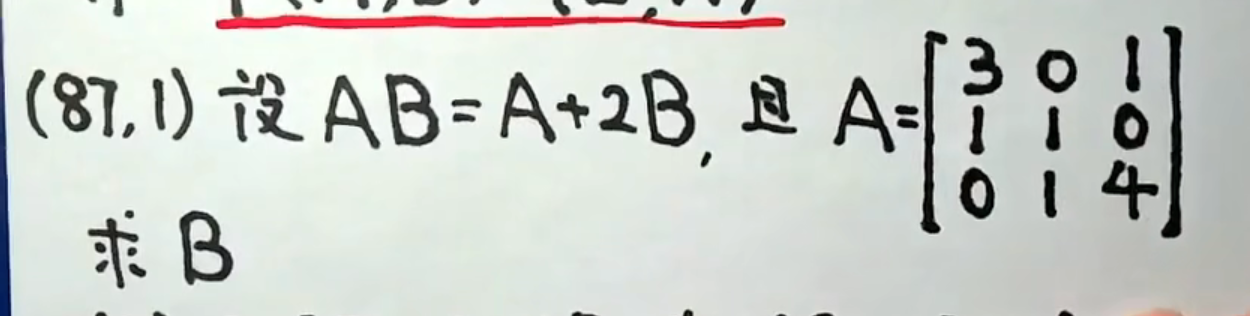 (87,1) 设 AB=A+2B, 且 A=[3 0 1
1 1 0
0 1 4]
求 B